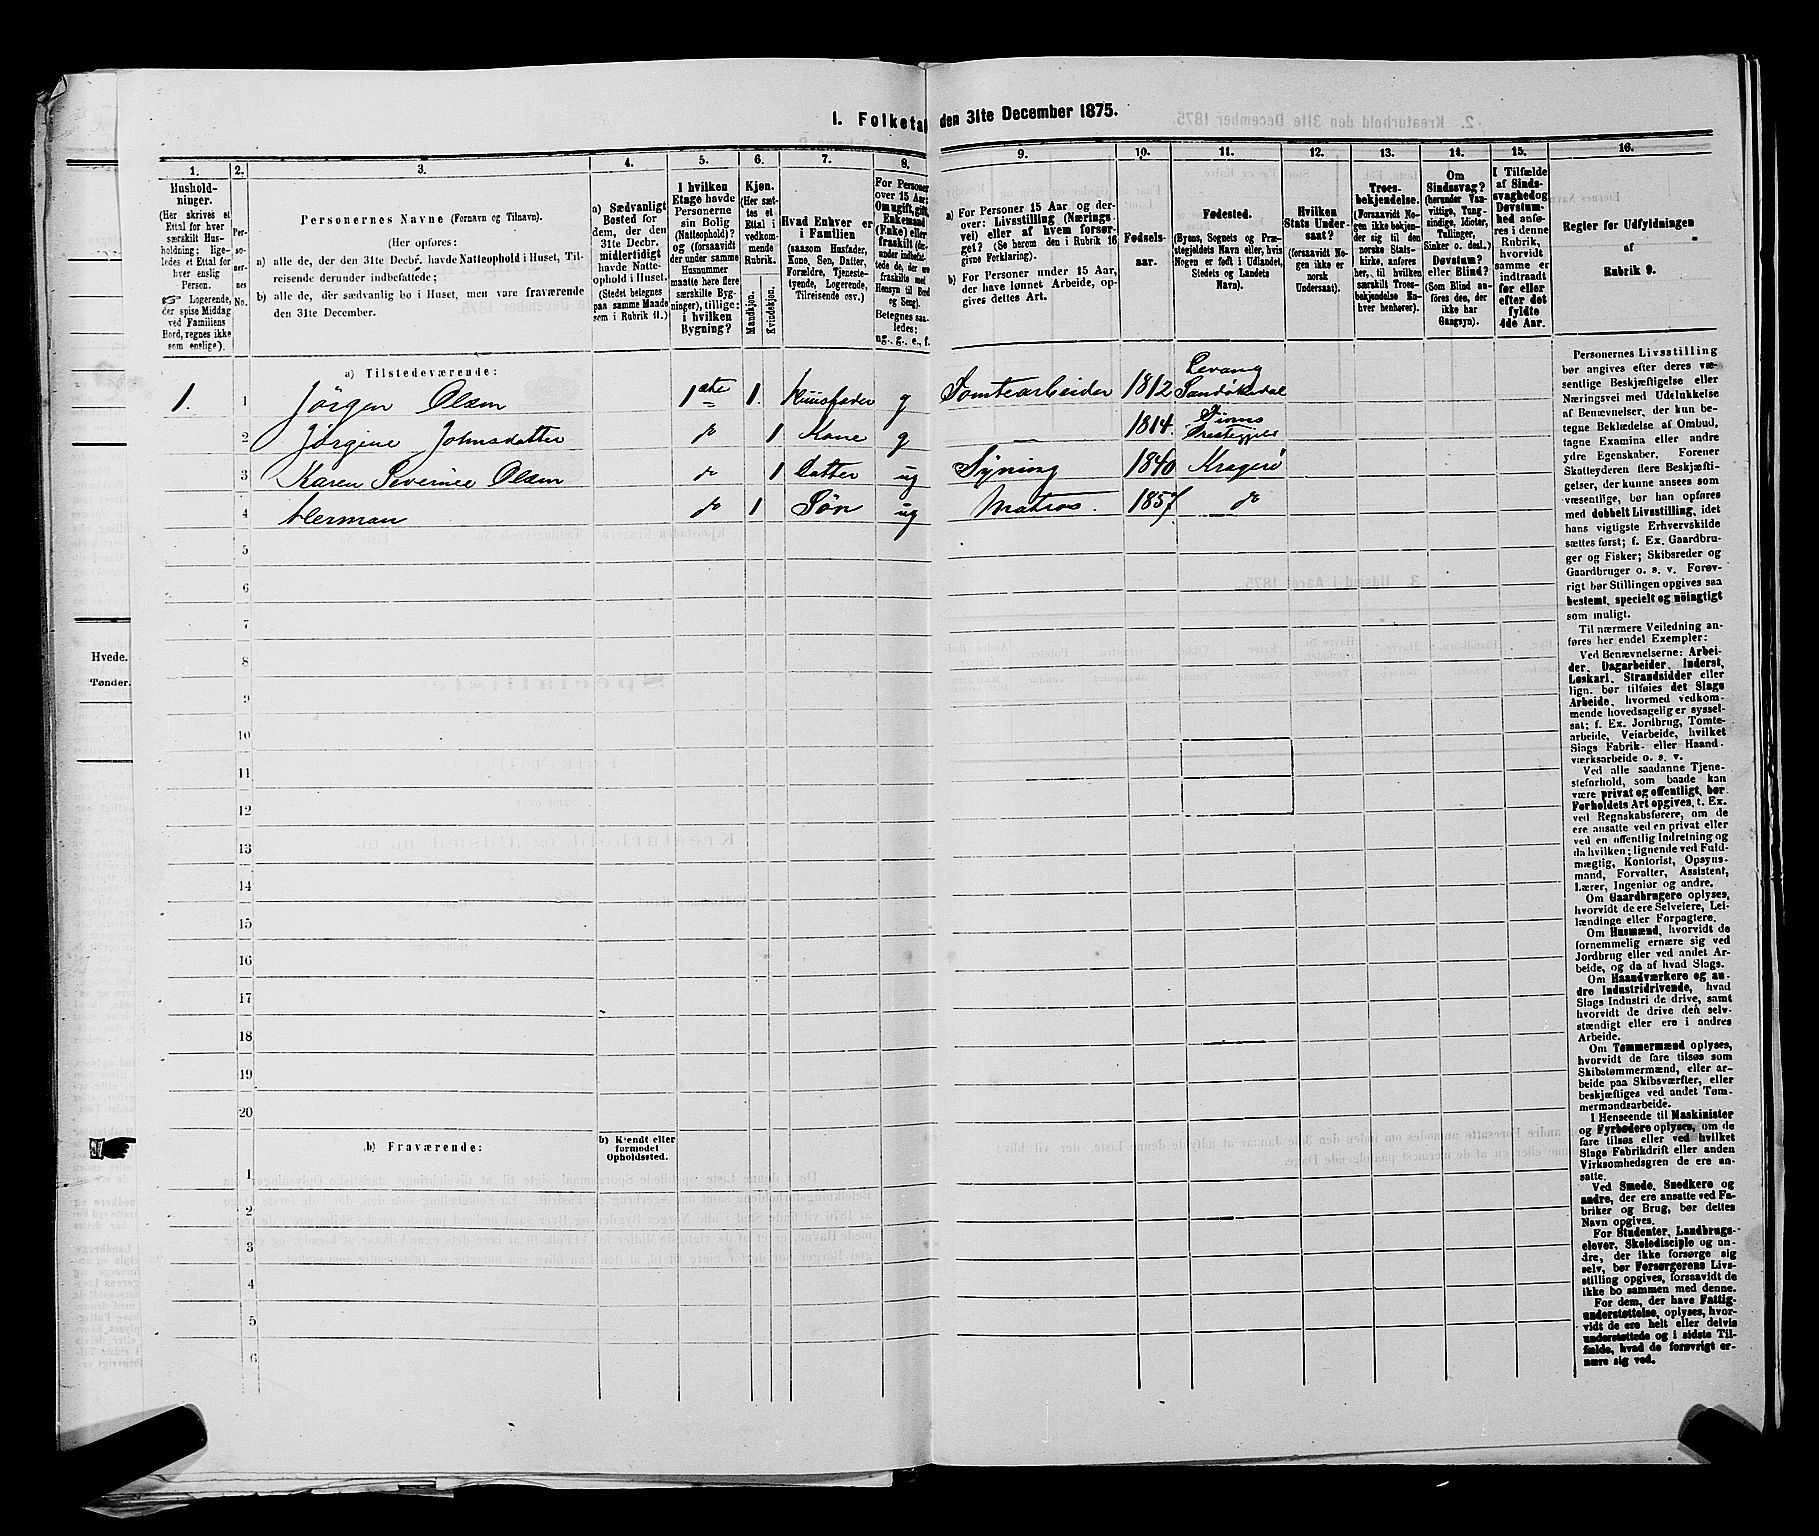 1. Folketal den 31te December 1875.
1. 2. 3. 4. 5. 6. 7. 8. 9. 10. 11. 12. 13. 14. 15. 16.
Hushold-
ninger.
(Her skrives et
Ettal for hver
særskilt Hus-
holdning; lige-
ledes et Ettal for
hver enslig
Person.
☞ Logerende,
der spise Middag
ved Familiens
Bord, regnes ikke
som enslige).
Per-
so-
ner-
nes
No.
Personernes Navne (Fornavn og Tilnavn).
(Her opføres:
a) alle de, der den 31te Decbr. havde Natteophold i Huset, Til-
reisende derunder indbefattede;
b) alle de, der sædvanlig bo i Huset, men vare fraværende
den 31te December.
a) Sædvanligt
Bosted for
dem, der den
31te Decbr.
midlertidigt
havde Natte-
ophold i Huset.
(Stedet betegnes
paa samme Maade
som i Rubrik 11.)
I hvilken
Etage havde
Personerne
sin Bolig
(Natteophold)?
og (forsaavidt
der under samme
Husnummer
maatte høre flere
særskilte Byg-
ninger), tillige:
i hvilken
Bygning?
Kjøn.
(Her sæt-
tes et
Ettal i
vedkom-
mende
Rubrik.
Mandkjøn.
Kvindekjøn.
Hvad Enhver er
i Familien
(saasom Husfader,
Kone, Søn, Datter,
Forældre, Tjeneste-
tyende, Logerende,
Tilreisende osv.)
For Personer
over 15 Aar:
Om ugift, gift,
Enkemand
(Enke) eller
fraskilt (der-
under indbefat-
tede de, der ere
fraskilte med
Hensyn til Bord
og Seng).
Betegnes saa-
ledes:
ug., g., e., f.
a) For Personer 15 Aar og der-
over: Livsstilling (Nærings-
vei) eller af hvem forsør-
get? (Se herom den i Rubrik 16
givne Forklaring).
b) For Personer under 15 Aar,
der have lønnet Arbeide, op-
gives dettes Art.
Fødsels-
aar.
Fødested.
(Byens, Sognets og Præ-
stegjeldets Navn eller, hvis
Nogen er født i Udlandet,
Stedets og Landets
Navn).
Hvilken
Stats Under-
saat?
(forsaavidt No-
gen ikke er
norsk
Undersaat).
Troes-
bekjendelse.
(Forsaavidt No-
gen ikke bekjen-
der sig til den
norske Stats-
kirke, anføres
her, til hvilken
særskilt Troes-
bekjendelse En-
hver henhører).
Om
Sindssvag?
(herunder Van-
vittige, Tung-
sindige, Idioter,
Tullinger,
Sinker o. desl.)
Døvstum?
eller Blind?
(Som Blind an-
føres den, der
ikke har
Gangsyn).
I Tilfælde
af Sinds-
svaghed og
Døvstum-
hed anfø-
res i denne
Rubrik,
hvorvidt
samme er
indtraadt
før eller
efter det
fyldte
4de Aar.
Regler for Udfyldningen
af
Rubrik 9.
a) Tilstedeværende:
1. 1 Jørgen Olsen 1ste 1. Huusfader g Tomtearbeider 1812 Levang Sandøkedal
2 Jørgine Johnsdatter do 1 Kone g 1814. Prestegjeld
3 Karen Severine Olsen do 1 Datter ug Syning 1840 Kragerø
4 Herman do 1 Søn ug Matros. 1857 do
5
6
7
8
9
10
11
12
13
14
15
16
17
18
19
20
b) Fraværende:
b) Kjendt eller
formodet
Opholdssted.
1
2
3
4
5
6
Personernes Livsstilling
bør angives efter deres væ-
sentlige Beskjæftigelse eller
Næringsvei med Udelukkelse
af Benævnelser, der kun be-
tegne Beklædelse af Ombud,
tagne Examina eller andre
ydre Egenskaber. Forener
Skatteyderen flere Beskjæfti-
gelser, der kunne ansees som
væsentlige, bør han opføres
med dobbelt Livsstilling, idet
hans vigtigste Erhvervskilde
sættes først; f. Ex. Gaardbru-
ger og Fisker; Skibsreder og
Gaardbruger o. s. v. Forøv-
rigt bør Stillingen opgives saa
bestemt, specielt og nöiagtigt
som muligt.
Til nærmere Veiledning an-
føres her endel Exempler:
Ved Benævnelserne: Arbei-
der, Dagarbeider, Inderst,
Løskarl, Strandsidder eller
lign. bør tilføies det Slags
Arbeide, hvormed vedkom-
mende hovedsagelig er syssel-
sat; f. Ex. Jordbrug, Tomte-
arbeide, Veiarbeide, hvilket
Slags Fabrik- eller Haand-
værksarbeide o. s. v.
Ved alle saadanne Tjene-
steforhold, som baade kan
være privat og offentligt, bør
Forholdets Art opgives, t. Ex.
ved Regnskabsførere, om de
ere ansatte ved en privat eller
ved en offentlig Indretning og
da hvilken; lignende ved Fuld-
mægtig, Kontorist, Opsyns-
mand, Forvalter, Assistent,
Lærer, Ingeniør og andre.
Om Gaardbrugere oplyses,
hvorvidt de ere Selveiere, Lei-
lændinge eller Forpagtere.
Om Husmænd, hvorvidt de
fornemmelig ernære sig ved
Jordbrug eller ved andet Ar-
beide, og da af hvad Slags.
Om Haandværkere og an-
dre Industridrivende, hvad
Slags Industri de drive, samt
hvorvidt de drive den selv-
stændigt eller ere i andres
Arbeide.
Om Tømmermænd oplyses,
hvorvidt de fare tilsøs som
Skibstømmermænd, eller ar-
beide paa Skibsværfter, eller
beskjæftiges ved andet Tøm-
mermandsarbeide.
I Henseende til Maskinister
og Fyrbødere oplyses, om de
fare tilsøs eller ved hvilket
Slags Fabrikdrift eller anden
Virksomhedsgren de ere an-
satte.
Ved Smede, Snedkere og
andre, der ere ansatte ved Fa-
briker og Brug, bør dettes
Navn opgives.
For Studenter, Landbrugs-
elever, Skoledisciple og an-
dre, der ikke forsørge sig
selv, bør Forsørgerens Livs-
stilling opgives, forsaavidt de
ikke bo sammen med denne.
For dem, der have Fattig-
understøttelse, oplyses, hvor-
vidt de ere helt eller delvis
understøttede og i sidste Til-
fælde, hvad de forøvrigt er-
nære sig ved.
Hvede.
Tønder.